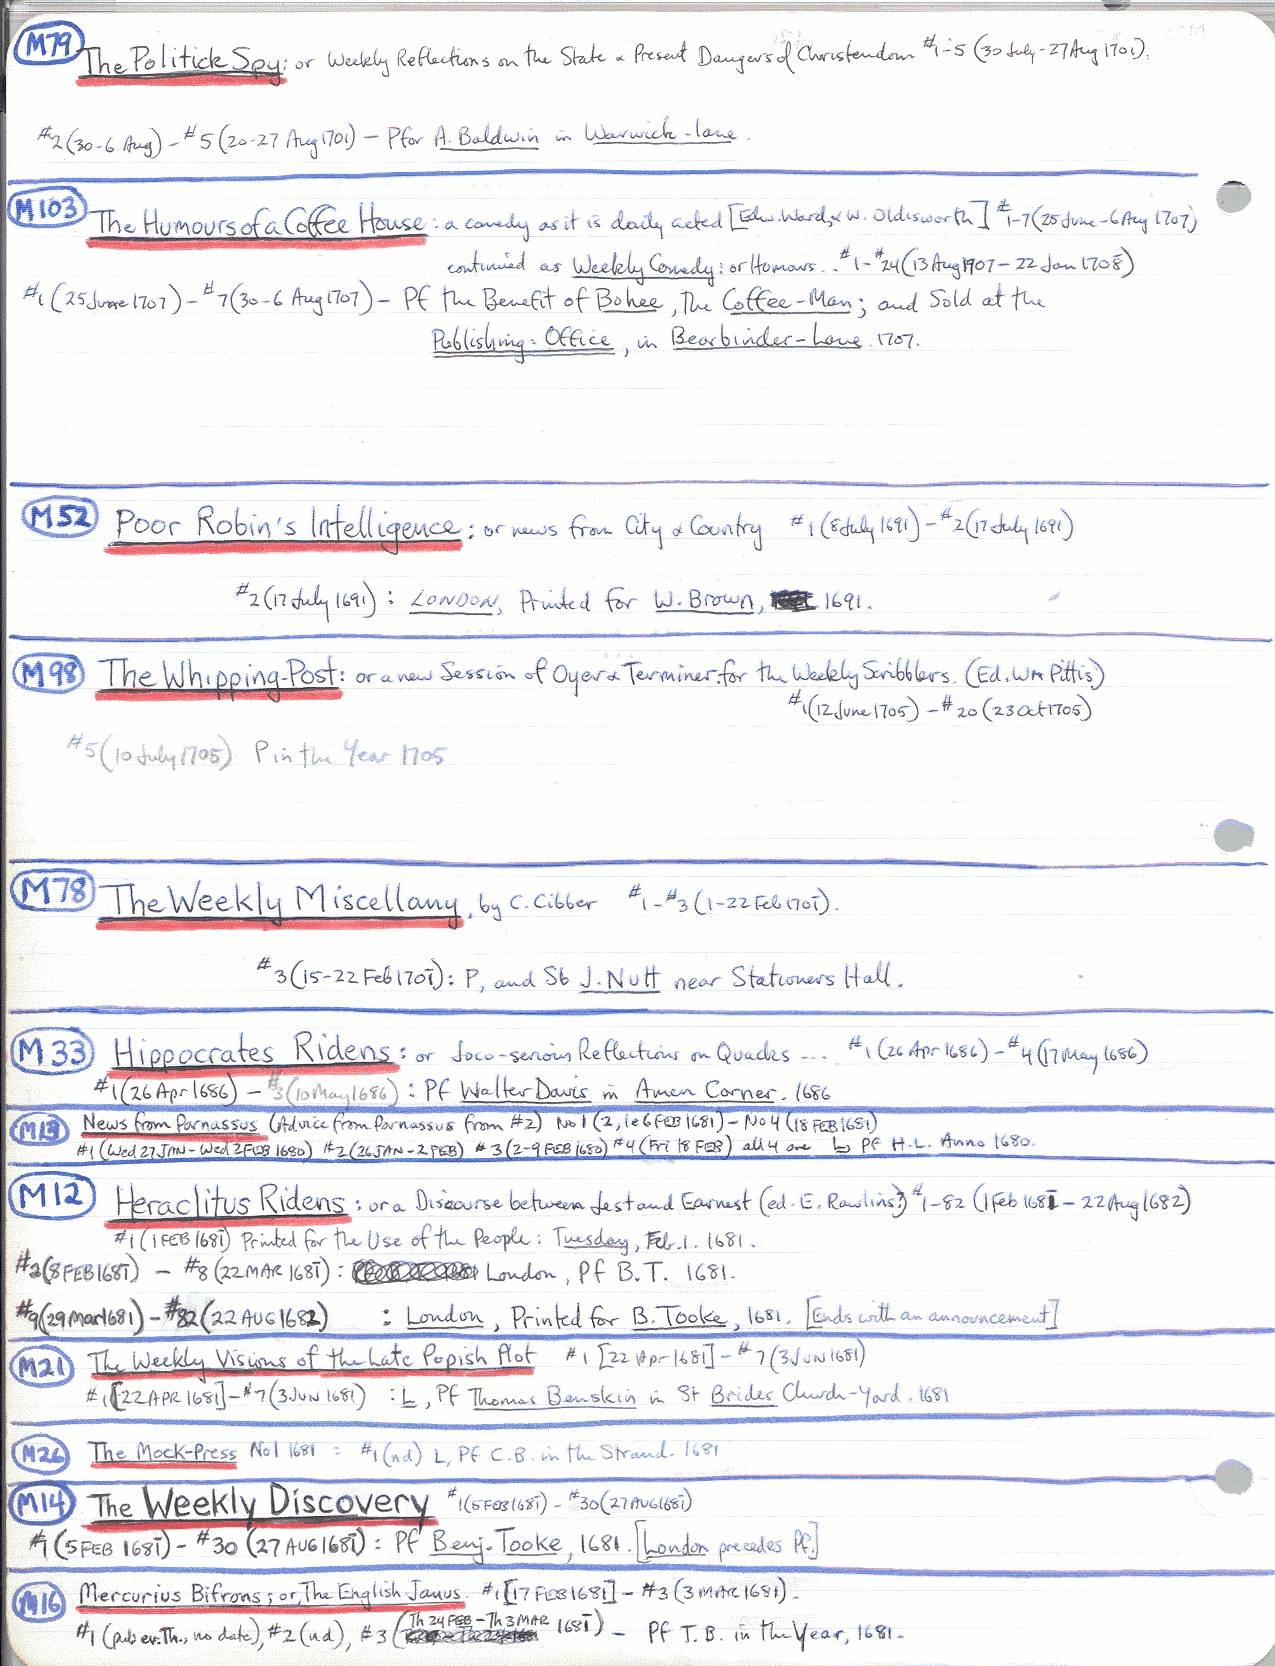 M79 The Politick Spy: or Weekly Reflections on the State & Present Dangers of Christendom #1-5 (30 July-27 Aug 1701).
#2 (30-6 Aug) - #5 (20-27 Aug 1701) - Pfor A. Baldwin in Warwick-lane.
M103 The Humours of a Coffee House: a comedy as it is daily acted [Edw. Ward & W. Oldisworth] #1-7 (25 June-6 Aug 1707)
continued as Weekly Comedy: or Humours.. #1-#24 (13 Aug 1907-22 Jan 1708)
#1 (25 June 1707) - #7 (30-6 Aug 1707) - Pf the Benefit of Bohee, the Coffee-Man; and Sold at the
Publishing-Office, in Bearbinder-Lane. 1707.
M52 Poor Robin's Intelligence: or news from City & Country #1 (8 July 1691) - #2 (17 July 1691)
#2 (17 July 1691): LONDON, Printed for W. Brown, 1691.
M98 The Whipping-Post: or a new Session of Oyer & Terminer for the Weekly Scribblers. (Ed. Wm Pittis)
#1 (12 June 1705) - #20 (23 Oct 1705)
#5 (10 July 1705) P in the Year 1705
M78 The Weekly Miscellany, by C. Cibber #1-#3 (1-22 Feb 1701̄).
#3 (15-22 Feb 1701̄): P, and Sb J. Nutt near Stationers Hall.
M33 Hippocrates Ridens: or Joco-serious Reflections on Quacks --- #1 (26 Apr 1686) - #4 (17 May 1686)
#1 (26 Apr 1686) - #3 (10 May 1686): Pf Walter Davis in Amen Corner. 1686
M13 News from Parnassus (Advice from Parnassus from #2) No 1 (2, ie 6 FEB 1681) - No 4 (18 FEB 1681)
#1 (Wed 27 JAN - Wed 2 FEB 1680) #2 (26 JAN - 2 FEB) #3 (2-9 FEB 1680) #4 (Fri 18 FEB) all 4 are Pf H.L. Anno 1680.
M12 Heraclitus Ridens: or a Discourse between Jest and Earnest (ed. E. Rawlins?) #1-82 (1 Feb 1681̄ - 22 Aug 1682)
#1 (1 FEB 1681̄) Printed for the Use of the People: Tuesday, Feb. 1. 1681.
#2 (8 FEB 1681̄) - #8 (22 MAR 1681̄): London, Pf B.T. 1681.
#9 (29 Mar 1681) - #82 (22 AUG 1682) : London, Printed for B. Tooke, 1681. [Ends with an announcement]
M21 The Weekly Visions of the Late Popish Plot #1 [22 Apr 1681] - #7 (3 JUN 1681)
#1 [22 APR 1681] - #7 (3 JUN 1681) : L, Pf Thomas Benskin in St Brides Church-Yard. 1681
M26 The Mock-Press No 1 1681 : #1 (nd) L, Pf C.B. in the Strand. 1681
M14 The Weekly Discovery #1 (5 FEB 1681̄) - #30 (27 AUG 1681̄)
#1 (5 FEB 1681̄) - #30 (27 AUG 1681̄): Pf Benj. Tooke, 1681. [London precedes Pf.]
M16 Mercurius Bifrons; or, The English Janus #1 [17 FEB 1681] - #3 (3 MAR 1681).
#1 (pub ev. Th., no date), #2 (nd), #3 (Th 24 FEB - Th 3 MAR 1681̄) - Pf T.B. in the Year, 1681.